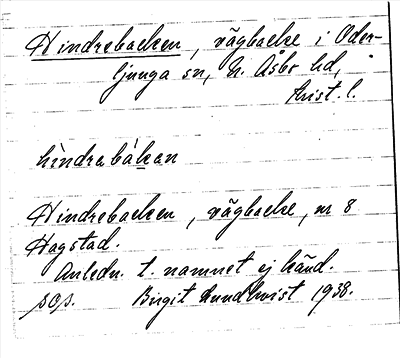 Hindrebacken, vägbacke i Oder-
ljunga sn, N. Åsbo hd,
Krist. l.
hìndrabák̲an
Hindrebacken, vägbacke, nr 8
Hagstad.
Anledn. t. namnet ej känd.
sgs. Birgit Lundkvist 1938.